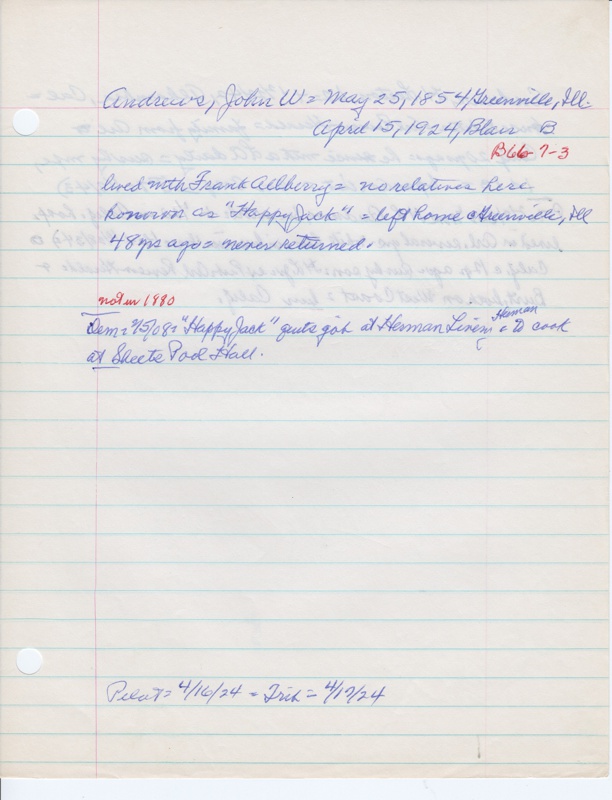 Andrews, John W = May 25, 1854, Greenville, Ill.
April 15, 1924, Blair B
B66-7-3
lived with Frank Ailberry = no relatives here
known as "Happy Jack" = left home Greenville, Ill
48 yrs ago = never returned.
not in 1980
Dem = 2/5/08 = "Happy Jack" quits job at Herman
Herman = to cook
at Sheets Pool Hall.
Pilot = 4/16/24 = Trib = 4/17/24